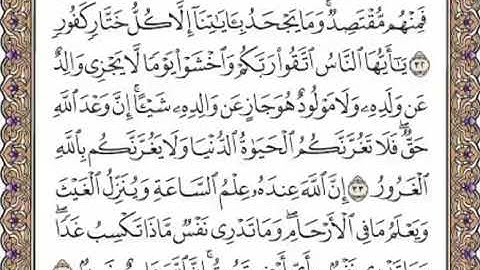 فَمِنْهُم مُّقْتَصِدٌ ۚ وَمَا يَجْحَدُ بِـَٔايَـٰتِنَآ إِلَّا كُلُّ خَتَّارٍ كَفُورٍ
٣٢ يَـٰٓأَيُّهَا ٱلنَّاسُ ٱتَّقُوا۟ رَبَّكُمْ وَٱخْشَوْا۟ يَوْمًا لَّا يَجْزِى وَالِدٌ
عَن وَلَدِهِۦ وَلَا مَوْلُودٌ هُوَ جَازٍ عَن وَالِدِهِۦ شَيْـًٔا ۚ إِنَّ وَعْدَ ٱللَّهِ
حَقٌّ ۖ فَلَا تَغُرَّنَّكُمُ ٱلْحَيَوٰةُ ٱلدُّنْيَا وَلَا يَغُرَّنَّكُم بِٱللَّهِ
ٱلْغَرُورُ ٣٣ إِنَّ ٱللَّهَ عِندَهُۥ عِلْمُ ٱلسَّاعَةِ وَيُنَزِّلُ ٱلْغَيْثَ
وَيَعْلَمُ مَا فِى ٱلْأَرْحَامِ ۖ وَمَا تَدْرِى نَفْسٌ مَّاذَا تَكْسِبُ غَدًا ۖ